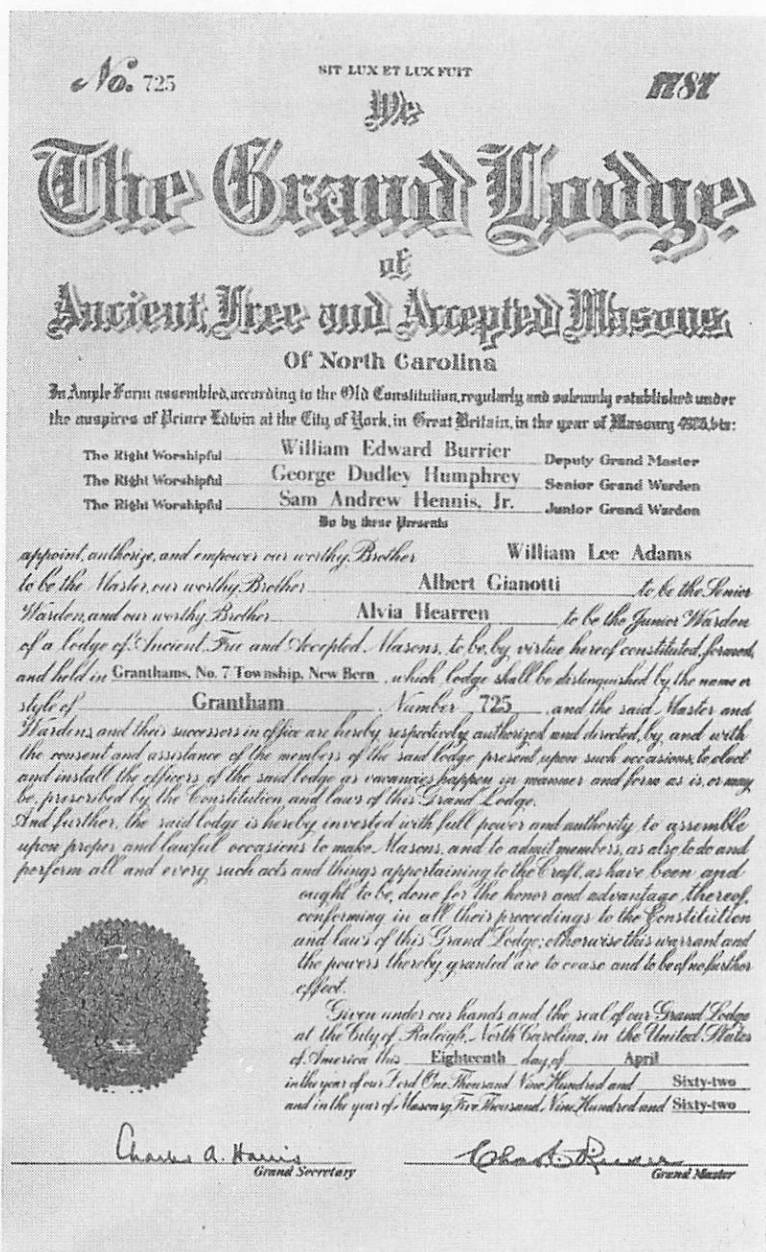 No. 725
SIT LUX ET LUX FUIT
1787
We
The Grand Lodge
of
Ancient, Free and Accepted Masons
Of North Carolina
In Ample Form assembled, according to the Old Constitution, regularly and solemnly established under
the auspices of Prince Edwin at the City of York, in Great Britain, in the year of Masonry viz:
The Right Worshipful William Edward Burrier Deputy Grand Master
The Right Worshipful George Dudley Humphrey Senior Grand Warden
The Right Worshipful Sam Andrew Hennis, Jr. Junior Grand Warden
Do by these Presents
appoint, authorize, and empower our worthy Brother William Lee Adams
to be the Master, our worthy Brother Albert Gianotti to be the Senior
Warden, and our worthy Brother Alvia Hearren to be the Junior Warden
of a lodge of Ancient Free and Accepted Masons, to be, by virtue hereof constituted, formed,
and held in Granthams, No. 7 Township, New Bern, which lodge shall be distinguished by the name or
style of Grantham Number 725 and the said Master and
Wardens, and their successors in office are hereby respectively authorized and directed, by, and with
the consent and assistance of the members of the said lodge present upon such occasions, to elect
and install the officers of the said lodge as vacancies happen in manner and form as is, or may
be, prescribed by the Constitution and laws of this Grand Lodge.
And further, the said lodge is hereby invested with full power and authority to assemble
upon proper and lawful occasions to make Masons, and to admit members, as also to do and
perform all and every such acts and things appertaining to the Craft, as have been and
ought to be, done for the honor and advantage thereof,
conforming in all their proceedings to the Constitution
and laws of this Grand Lodge; otherwise this warrant and
the powers thereby granted are to cease and to be of no further
effect.
Given under our hands and the seal of our Grand Lodge
at the City of Raleigh, North Carolina, in the United States
of America this Eighteenth day of April
in the year of our Lord One Thousand Nine Hundred and Sixty-two
and in the year of Masonry Five Thousand, Nine Hundred and Sixty-two
Charles A. Harris
Grand Secretary
Grand Master